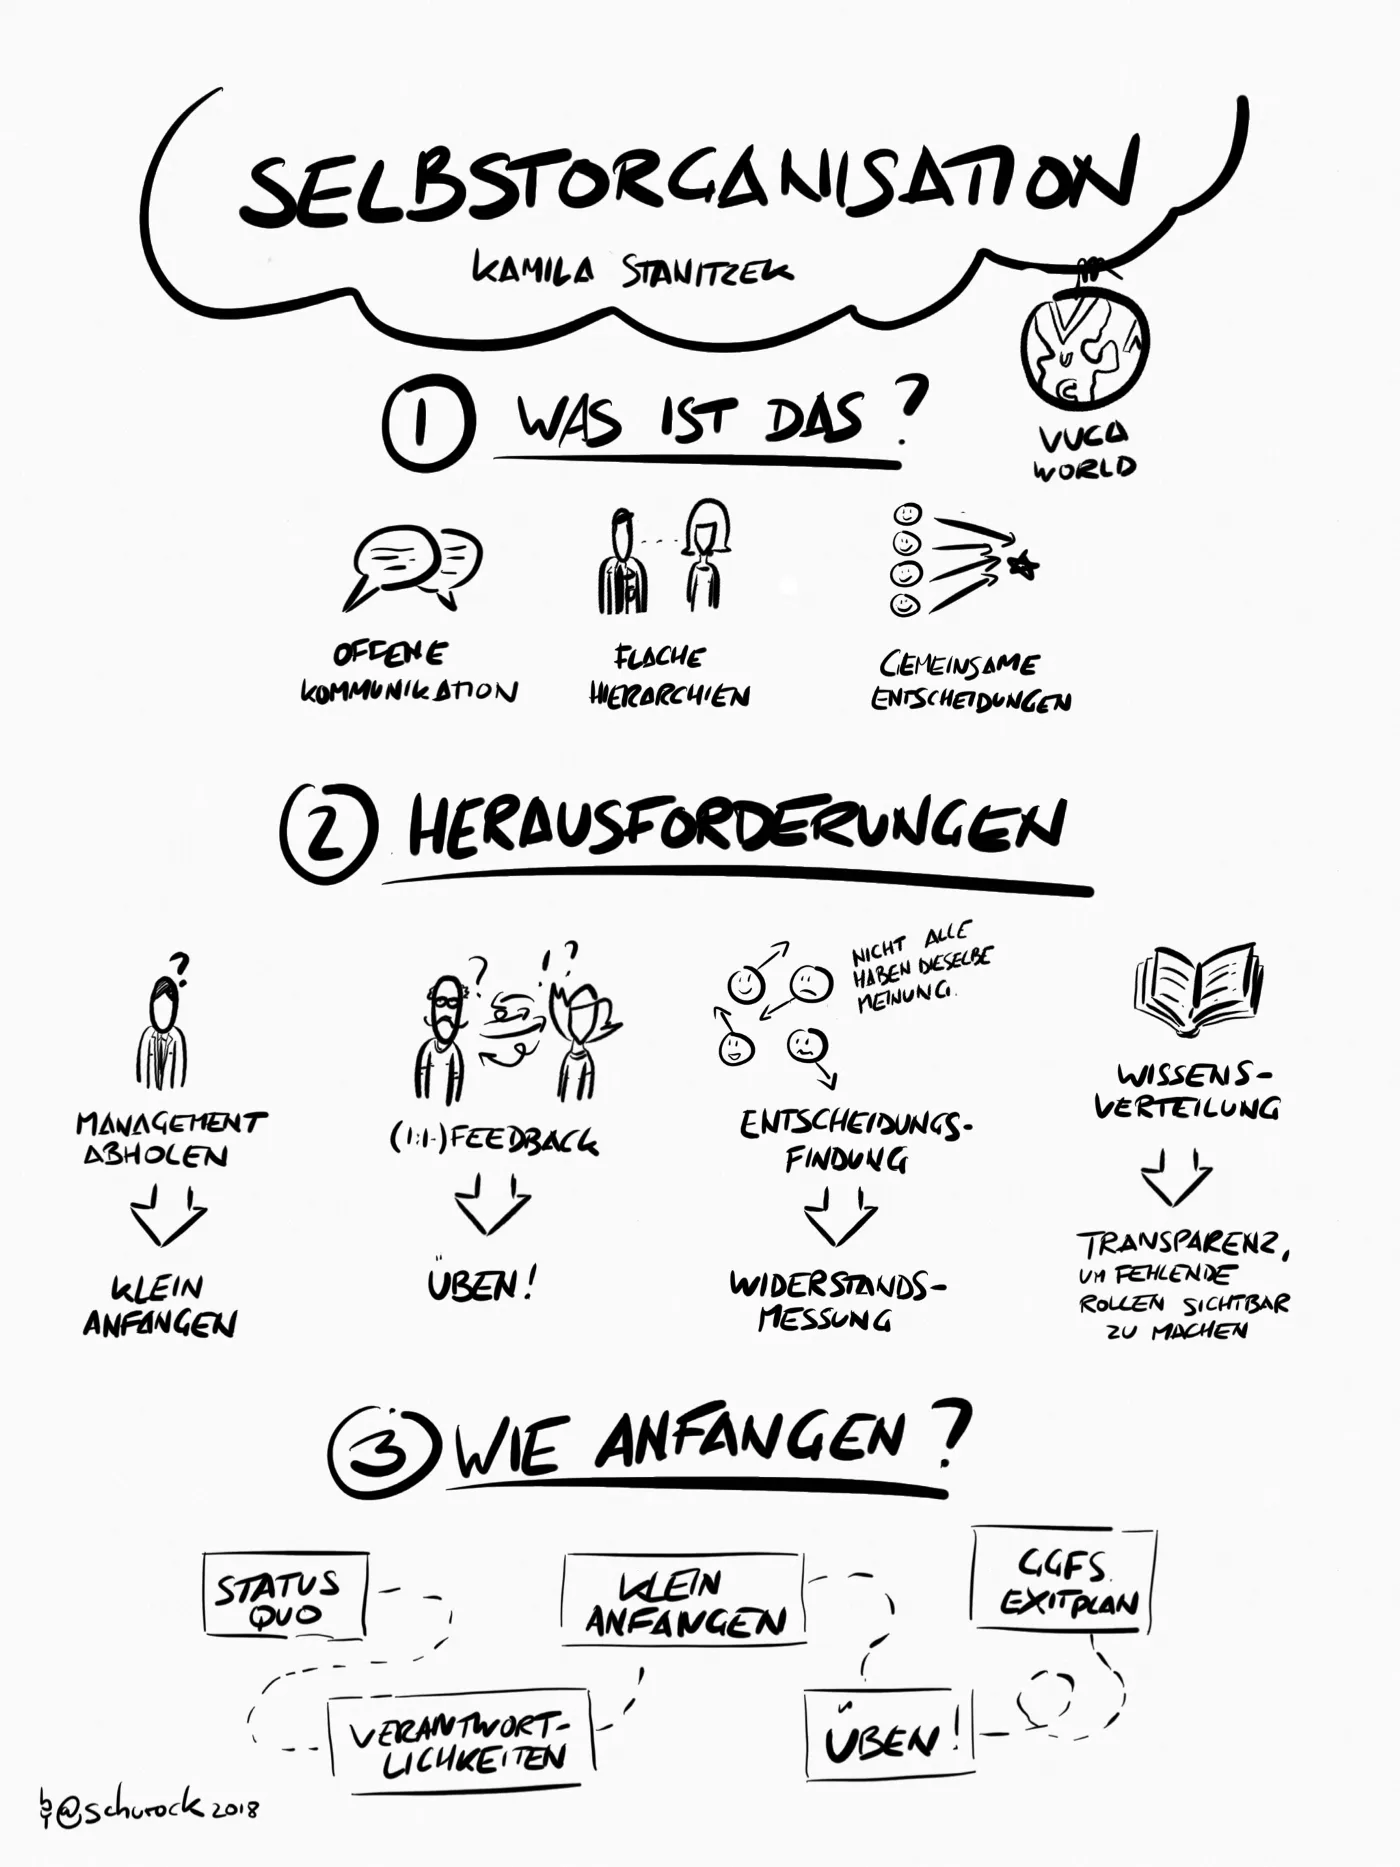 SELBSTORGANISATION
KAMILA STANITZEK
VUCA
WORLD
1 WAS IST DAS?
OFFENE
KOMMUNIKATION
FLACHE
HIERARCHIEN
GEMEINSAME
ENTSCHEIDUNGEN
2 HERAUSFORDERUNGEN
?
MANAGEMENT
ABHOLEN
KLEIN
ANFANGEN
? ! ?
(1:1-)FEEDBACK
ÜBEN!
NICHT ALLE
HABEN DIESELBE
MEINUNG.
ENTSCHEIDUNGS-
FINDUNG
WIDERSTANDS-
MESSUNG
WISSENS-
VERTEILUNG
TRANSPARENZ,
UM FEHLENDE
ROLLEN SICHTBAR
ZU MACHEN
3 WIE ANFANGEN?
STATUS
QUO
VERANTWORT-
LICHKEITEN
KLEIN
ANFANGEN
ÜBEN!
GGFS.
EXITPLAN
by @schurock 2018